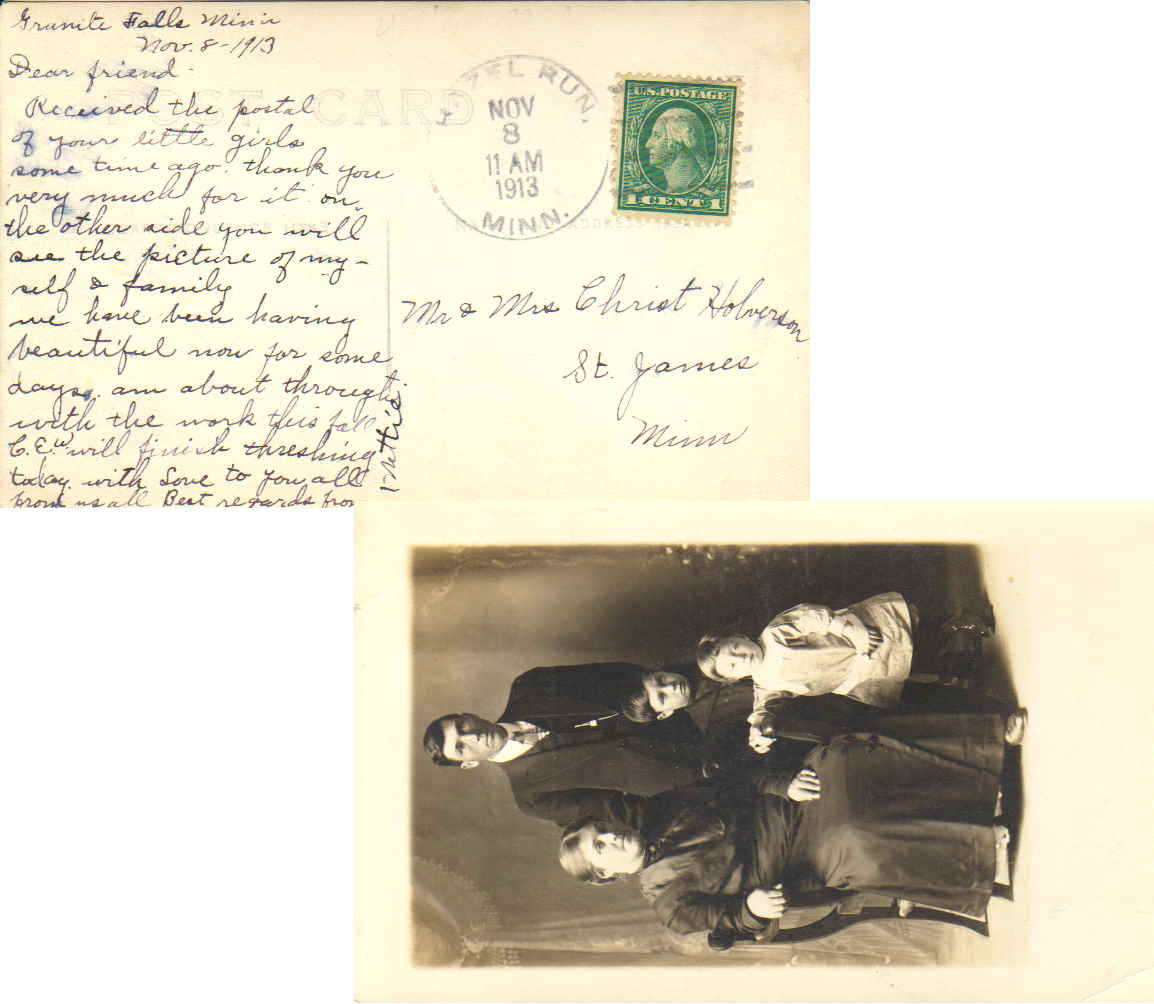 Granite Falls Minn
Nov. 8-1913
Dear friend
Received the postal
of your little girls
some time ago. thank you
very much for it on
the other side you will
see the picture of my-
self & family
we have been having
beautiful now for some
days. am about through
with the work this fall
C.E.W. will finish threshing
today. with Love to you all
from us all Best regards from
POST CARD
HAZEL RUN.
NOV
8
11 AM
1913
MINN.
U.S. POSTAGE
1 CENT 1
Mr & Mrs Christ Holverson
St. James
Minn